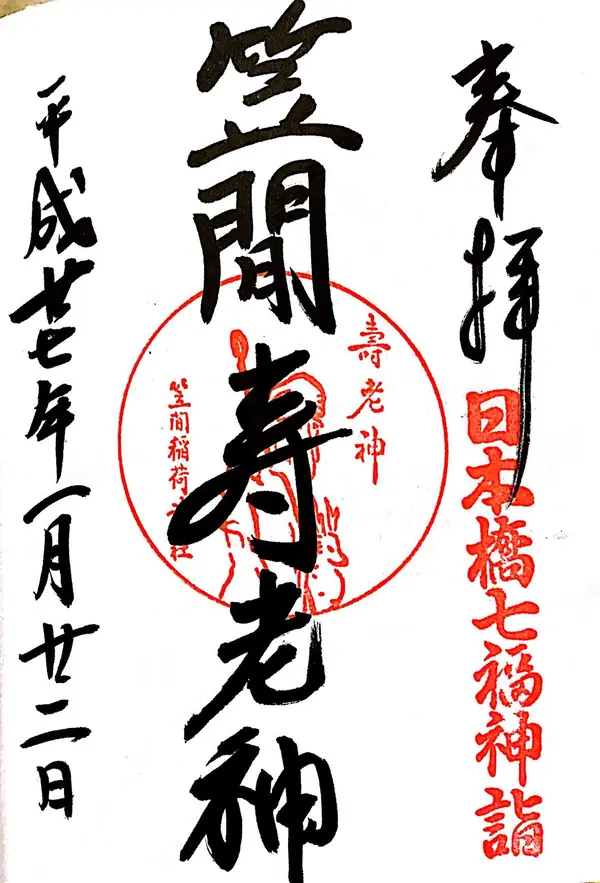 奉拝
日本橋七福神詣
笠間寿老神
壽老神
笠間稲荷神社
平成廿七年一月廿二日